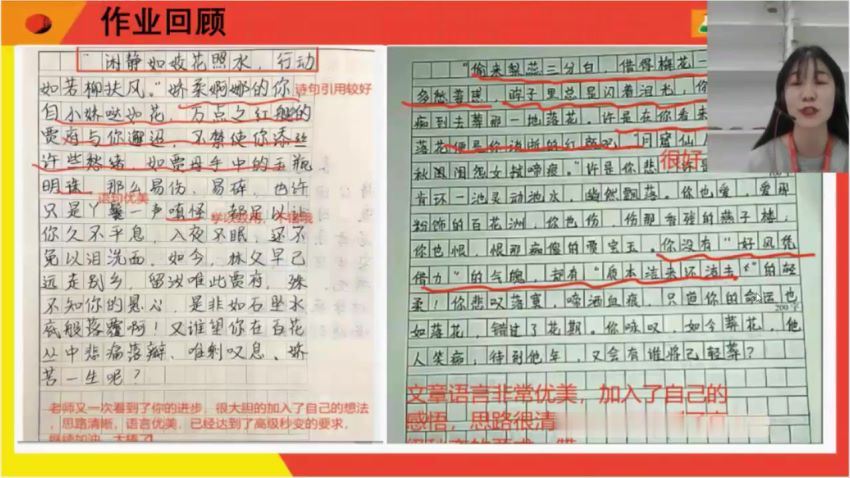 作业回顾
"闲静如姣花照水，行动
如若柳扶风。"娇柔婀娜的你，
诗句引用较好
自小妹哒如花，万点之红般的
贾府与你邂逅，不禁使你添丝
许些愁绪，如贾母手中的玉瓶
明珠，那么易伤，易碎，也许
语句优美
只是丫鬟一声嗔怪，都足以让
你久不平息，入夜不眠，还不
免以泪洗面。如今，林父早已
远走别乡，留汝唯此贾府，殊
不知你的愚公，是非如石坠水
底般落寞啊！又谁望你在百花
丛中悲痛落瓣，唯剩叹息、娇
苦一生呢？
老师又一次看到了你的进步，很大胆的加入了自己的想法
，思路清晰，语言优美，已经达到了高级秒变的要求，
继续加油，大棒了
"偷来梨蕊三分白，借得梅花一
多愁善感，眸子里总是闪着泪光，你
痴到去葬那一地落花。许是在你看来
落花便是你
"月窟仙人
很好
秋闺怨女拭啼痕。"许是你悲
一池灵动池水，幽然飘落。你也爱，爱那
粉饰的百花洲，你也伤，伤那香残的燕子楼，
你也恨，恨那痴傻的贾宝玉。你没有"好风凭
借力"的气魄，却有"质本洁来还洁去"的轻
柔！你悲叹落寞，啼洒血痕，只道你的命运也
200字
如落花，错过了花期。你咏叹，如今葬花，他
人笑痴；待到他年，又会有谁将己轻葬？
文章语言非常优美，加入了自己的
感悟，思路很清